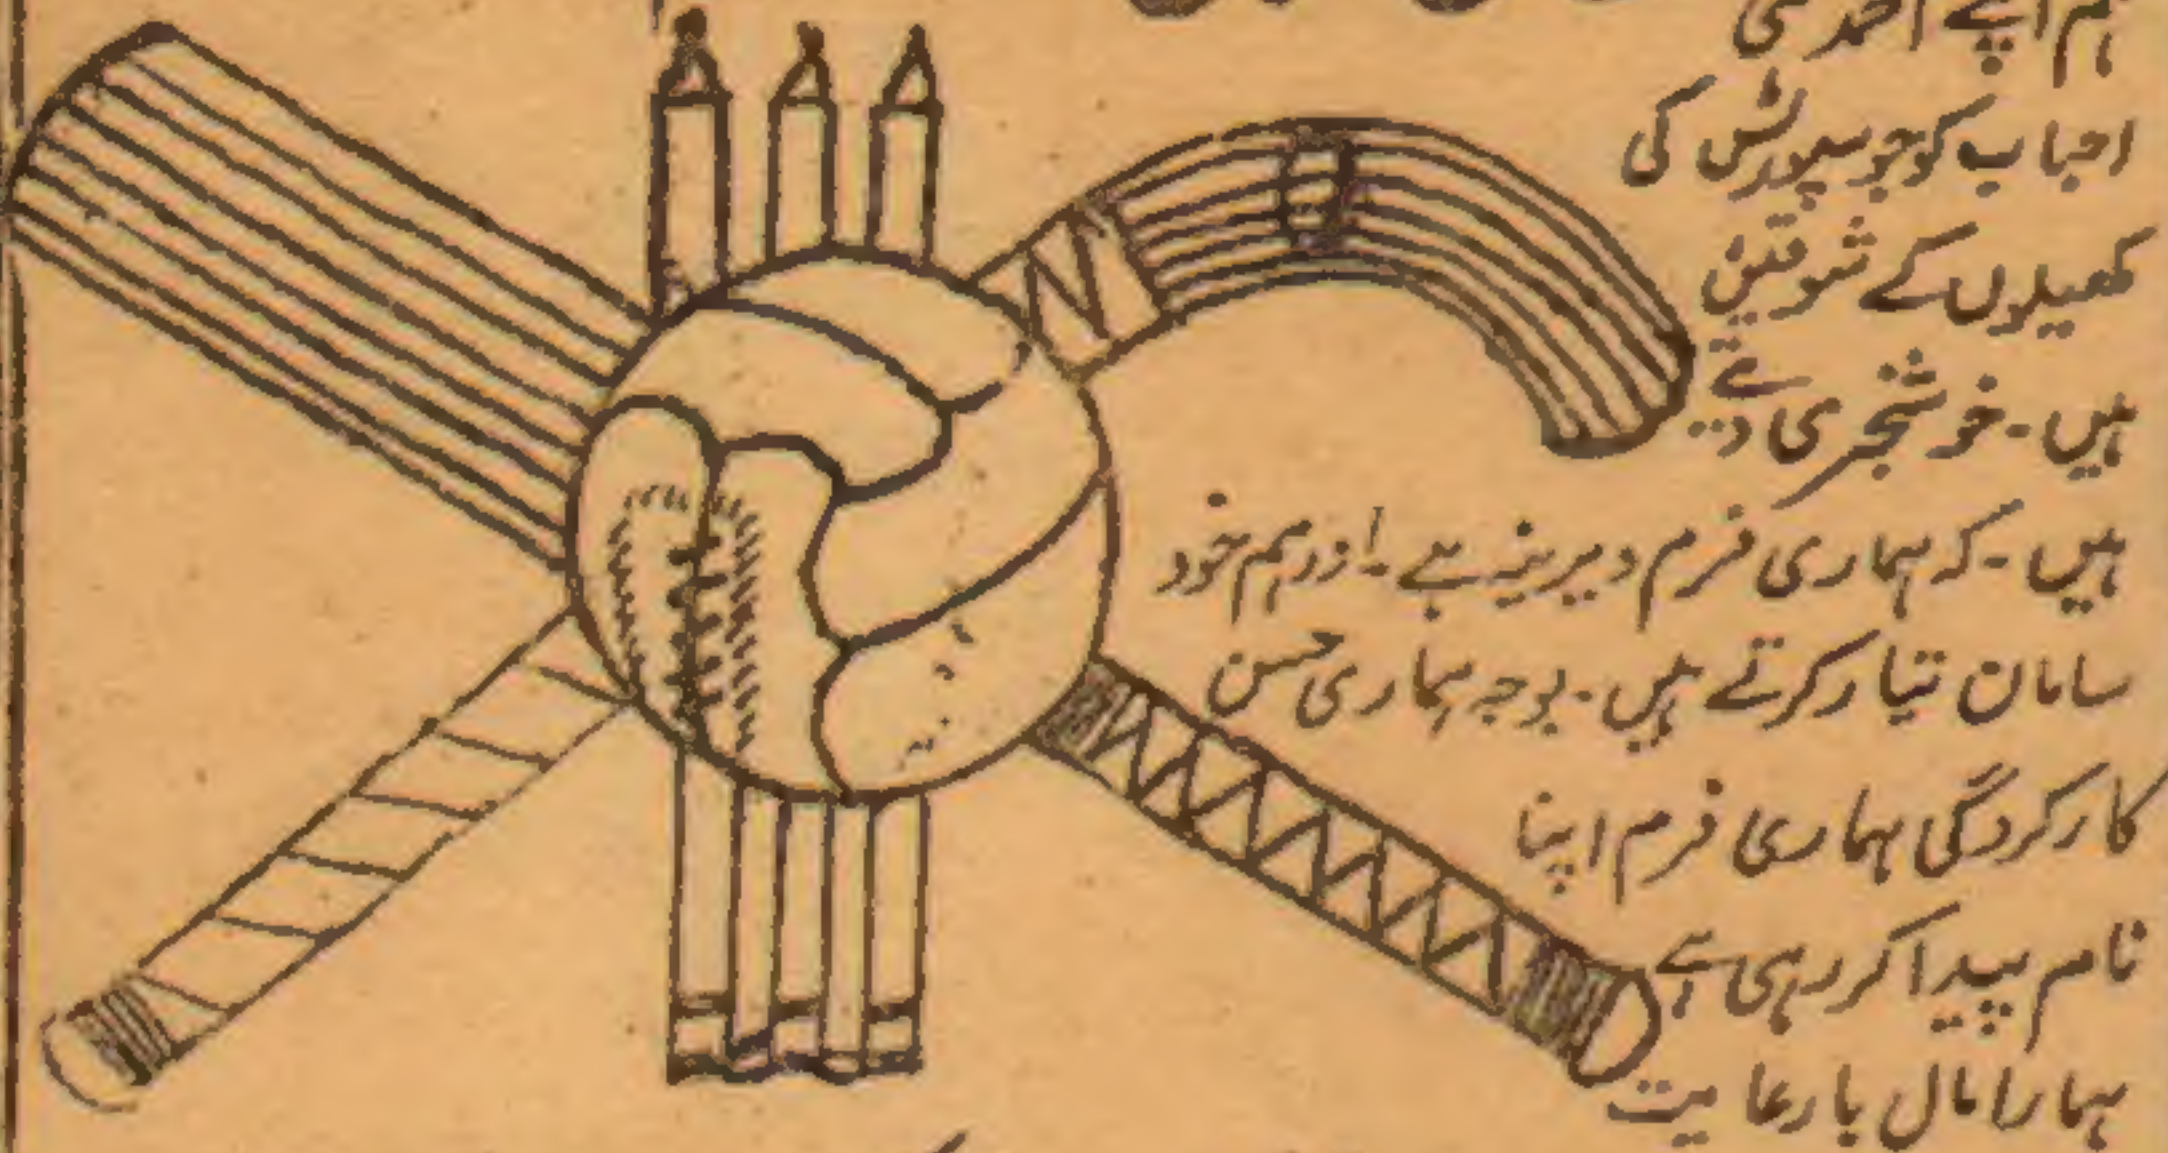 ہم اپنے احمدی
احباب کو جو سپورٹس کی
کھیلوں کے شوقین
ہیں۔ خوشخبری دیتے
ہیں۔ کہ ہماری فرم دیرینہ ہے۔ اور ہم خود
سامان تیار کرتے ہیں۔ بوجہ ہماری حسن
کارکردگی ہماری فرم اپنا
نام پیدا کر رہی ہے
ہمارا مال بارعایت